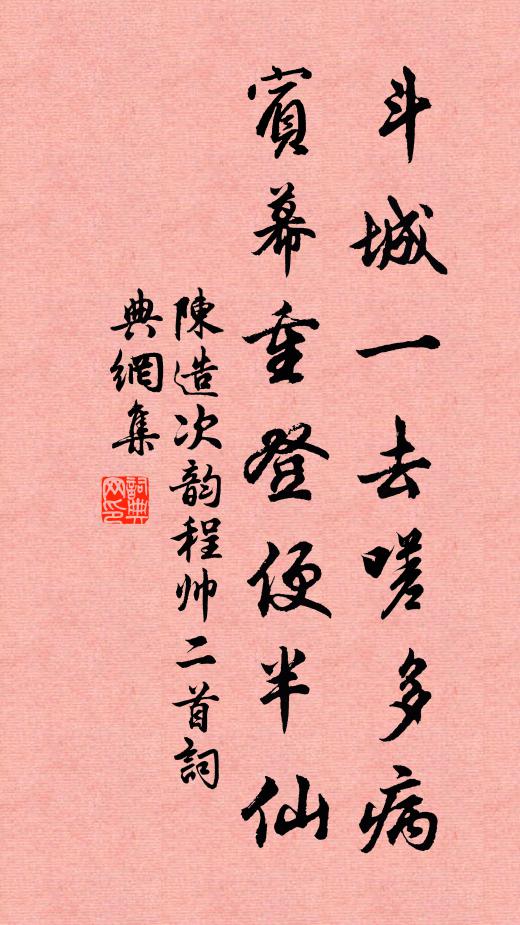 斗城一去嗟多病
賓幕重登便半仙
陳造次韵程帅二首詞
典網集
詞典網印